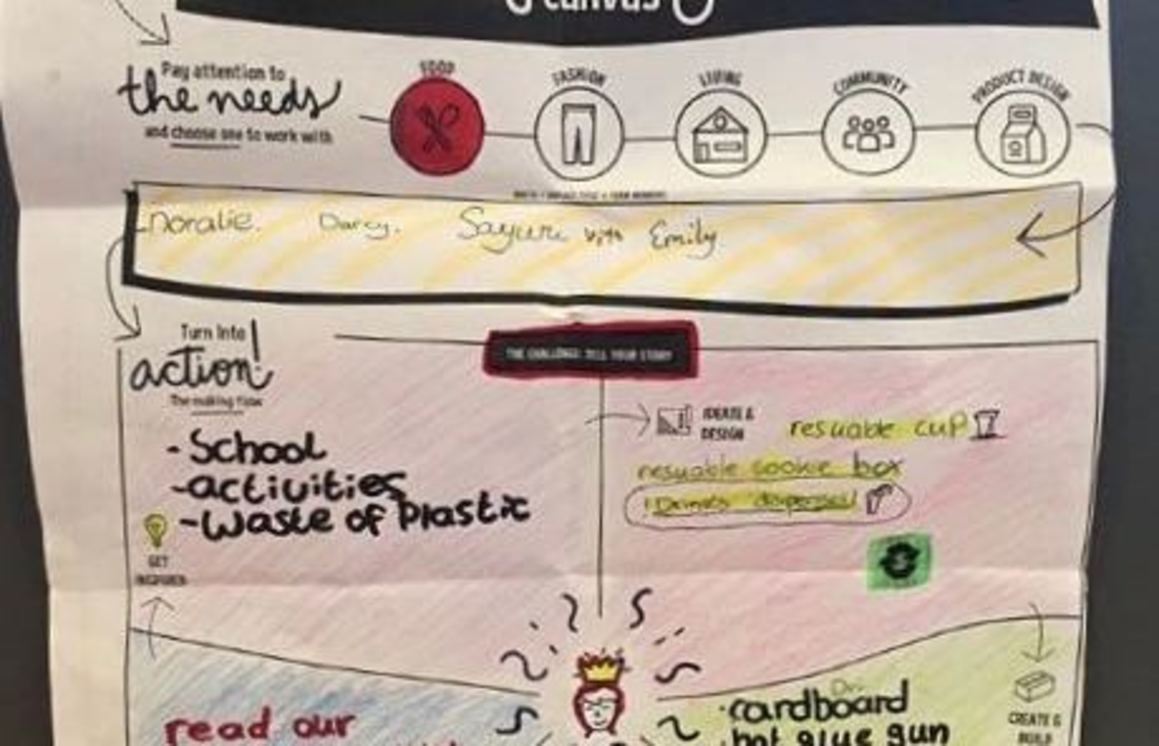 canvas
Pay attention to
the needs
and choose one to work with
FOOD
FASHION
LIVING
COMMUNITY
PRODUCT DESIGN
noralie. Darcy. Sayuri with Emily
Turn Into
action!
The making flow
THE CHALLENGE: TELL YOUR STORY
- School
- activities
- Waste of Plastic
GET
INSPIRED
IDEATE &
DESIGN
resuable cup
resuable cookie box
Drinks dispenser
read our
cardboard
hot glue gun
CREATE &
BUILD